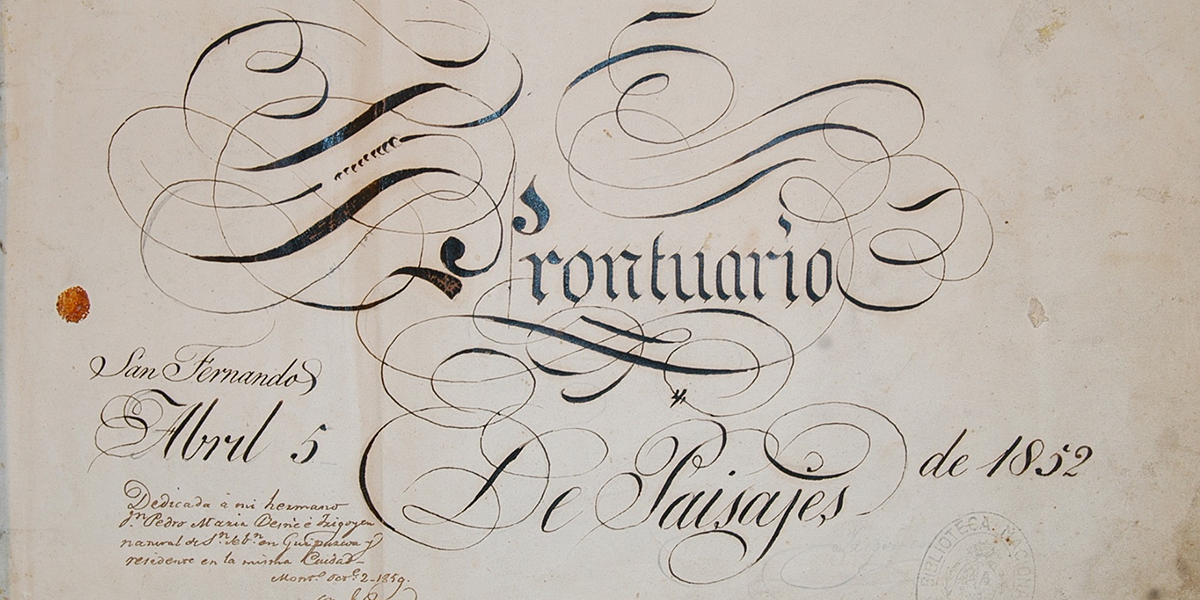 Prontuario
San Fernando
Abril 5
De Paisajes
de 1852
Dedicada à mi hermano
Dn Pedro Maria Irigoyen
natural de Sn Sebn en Guipuzcoa y
residente en la misma Ciudad
2-1859.
BIBLIOTECA NACIONAL